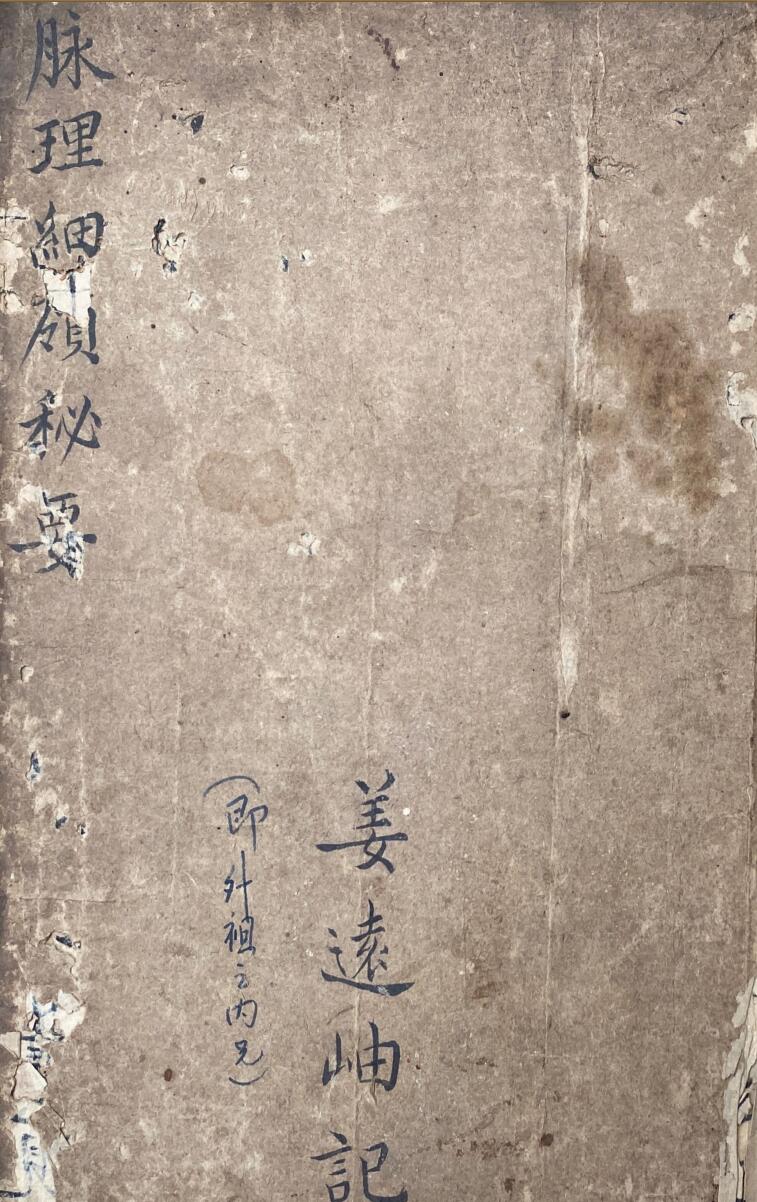 姜遠岫記
（即外祖之内兄）
脉理細秘要